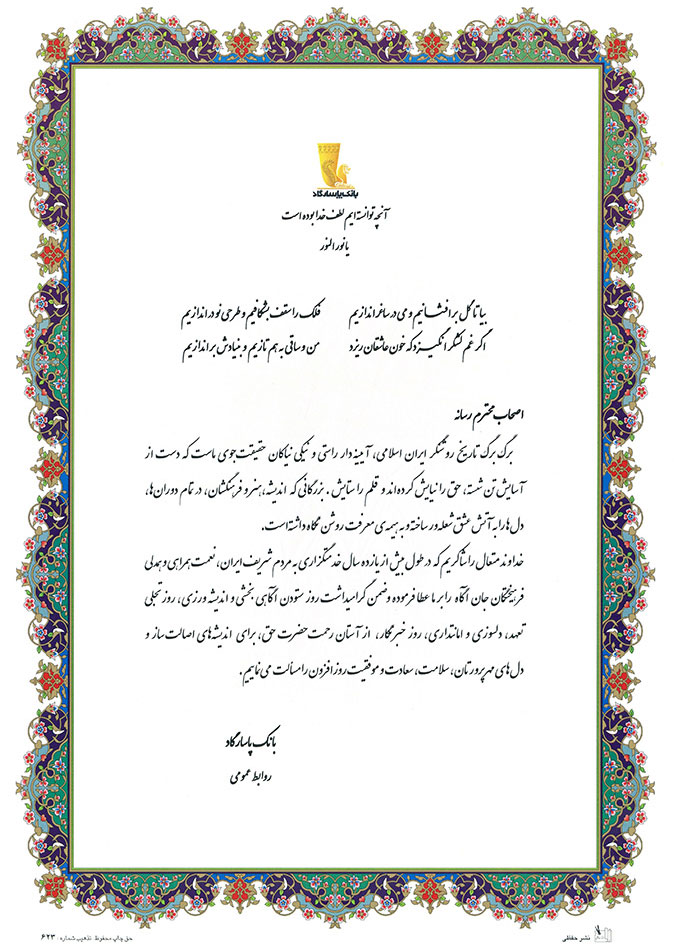 بانک پاسارگاد
آنچه توانسته ایم لطف خدا بوده است
یا نور النور
بیا تا گل برافشانیم و می در ساغر اندازیم فلک را سقف بشکافیم و طرحی نو در اندازیم
اگر غم لشکر انگیزد که خون عاشقان ریزد من و ساقی به هم تازیم و بنیادش براندازیم
اصحاب محترم رسانه
برگ برگ تاریخ روشنگر ایران اسلامی، آیینه دار راستی و نیکی نیاکان حقیقت جوی ماست که دست از
آسایش تن شسته، حق را نیایش کرده‌اند و قلم را ستایش. بزرگانی که اندیشه، هنر و فرهنگشان، در تمام دوران‌ها،
دل‌ها را به آتش عشق شعله‌ور ساخته و به هیمه‌ی معرفت روشن نگاه داشته است.
خداوند متعال را شاکریم که در طول بیش از یازده سال خدمتگزاری به مردم شریف ایران، نعمت همراهی و همدلی
فرهیختگان جان آگاه را بر ما عطا فرموده و ضمن گرامیداشت روز ستودن آگاهی بخشی و اندیشه ورزی، روز تجلی
تعهد، دلسوزی و امانتداری، روز خبرنگار، از آستان رحمت حضرت حق، برای اندیشه‌های اصالت ساز و
دل‌های مهرپرورتان، سلامت، سعادت و موفقیت روز افزون را مسألت می‌نماییم.
بانک پاسارگاد
روابط عمومی
نشر حفظی
حق چاپ محفوظ تذهیب شماره: ۶۲۳